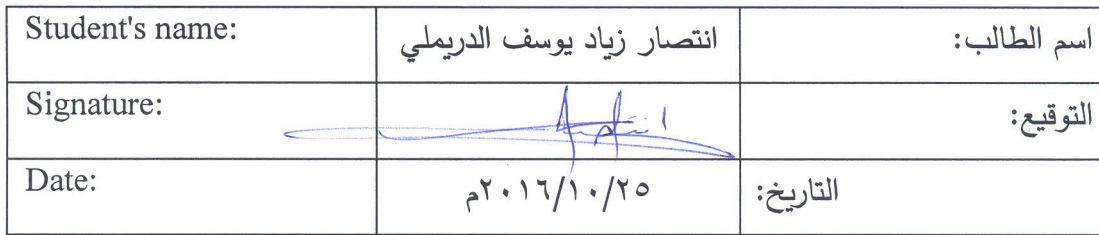 Student's name: انتصار زياد يوسف الدريملي اسم الطالب:
Signature: انتصار التوقيع:
Date: ٢٠١٦/١٠/٢٥م التاريخ: